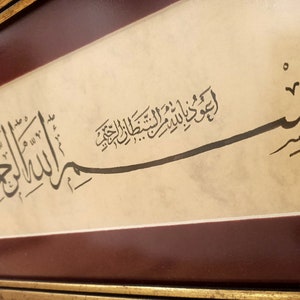 اعوذ بالله من الشيطان الرجيم
بسم الله الرحمن